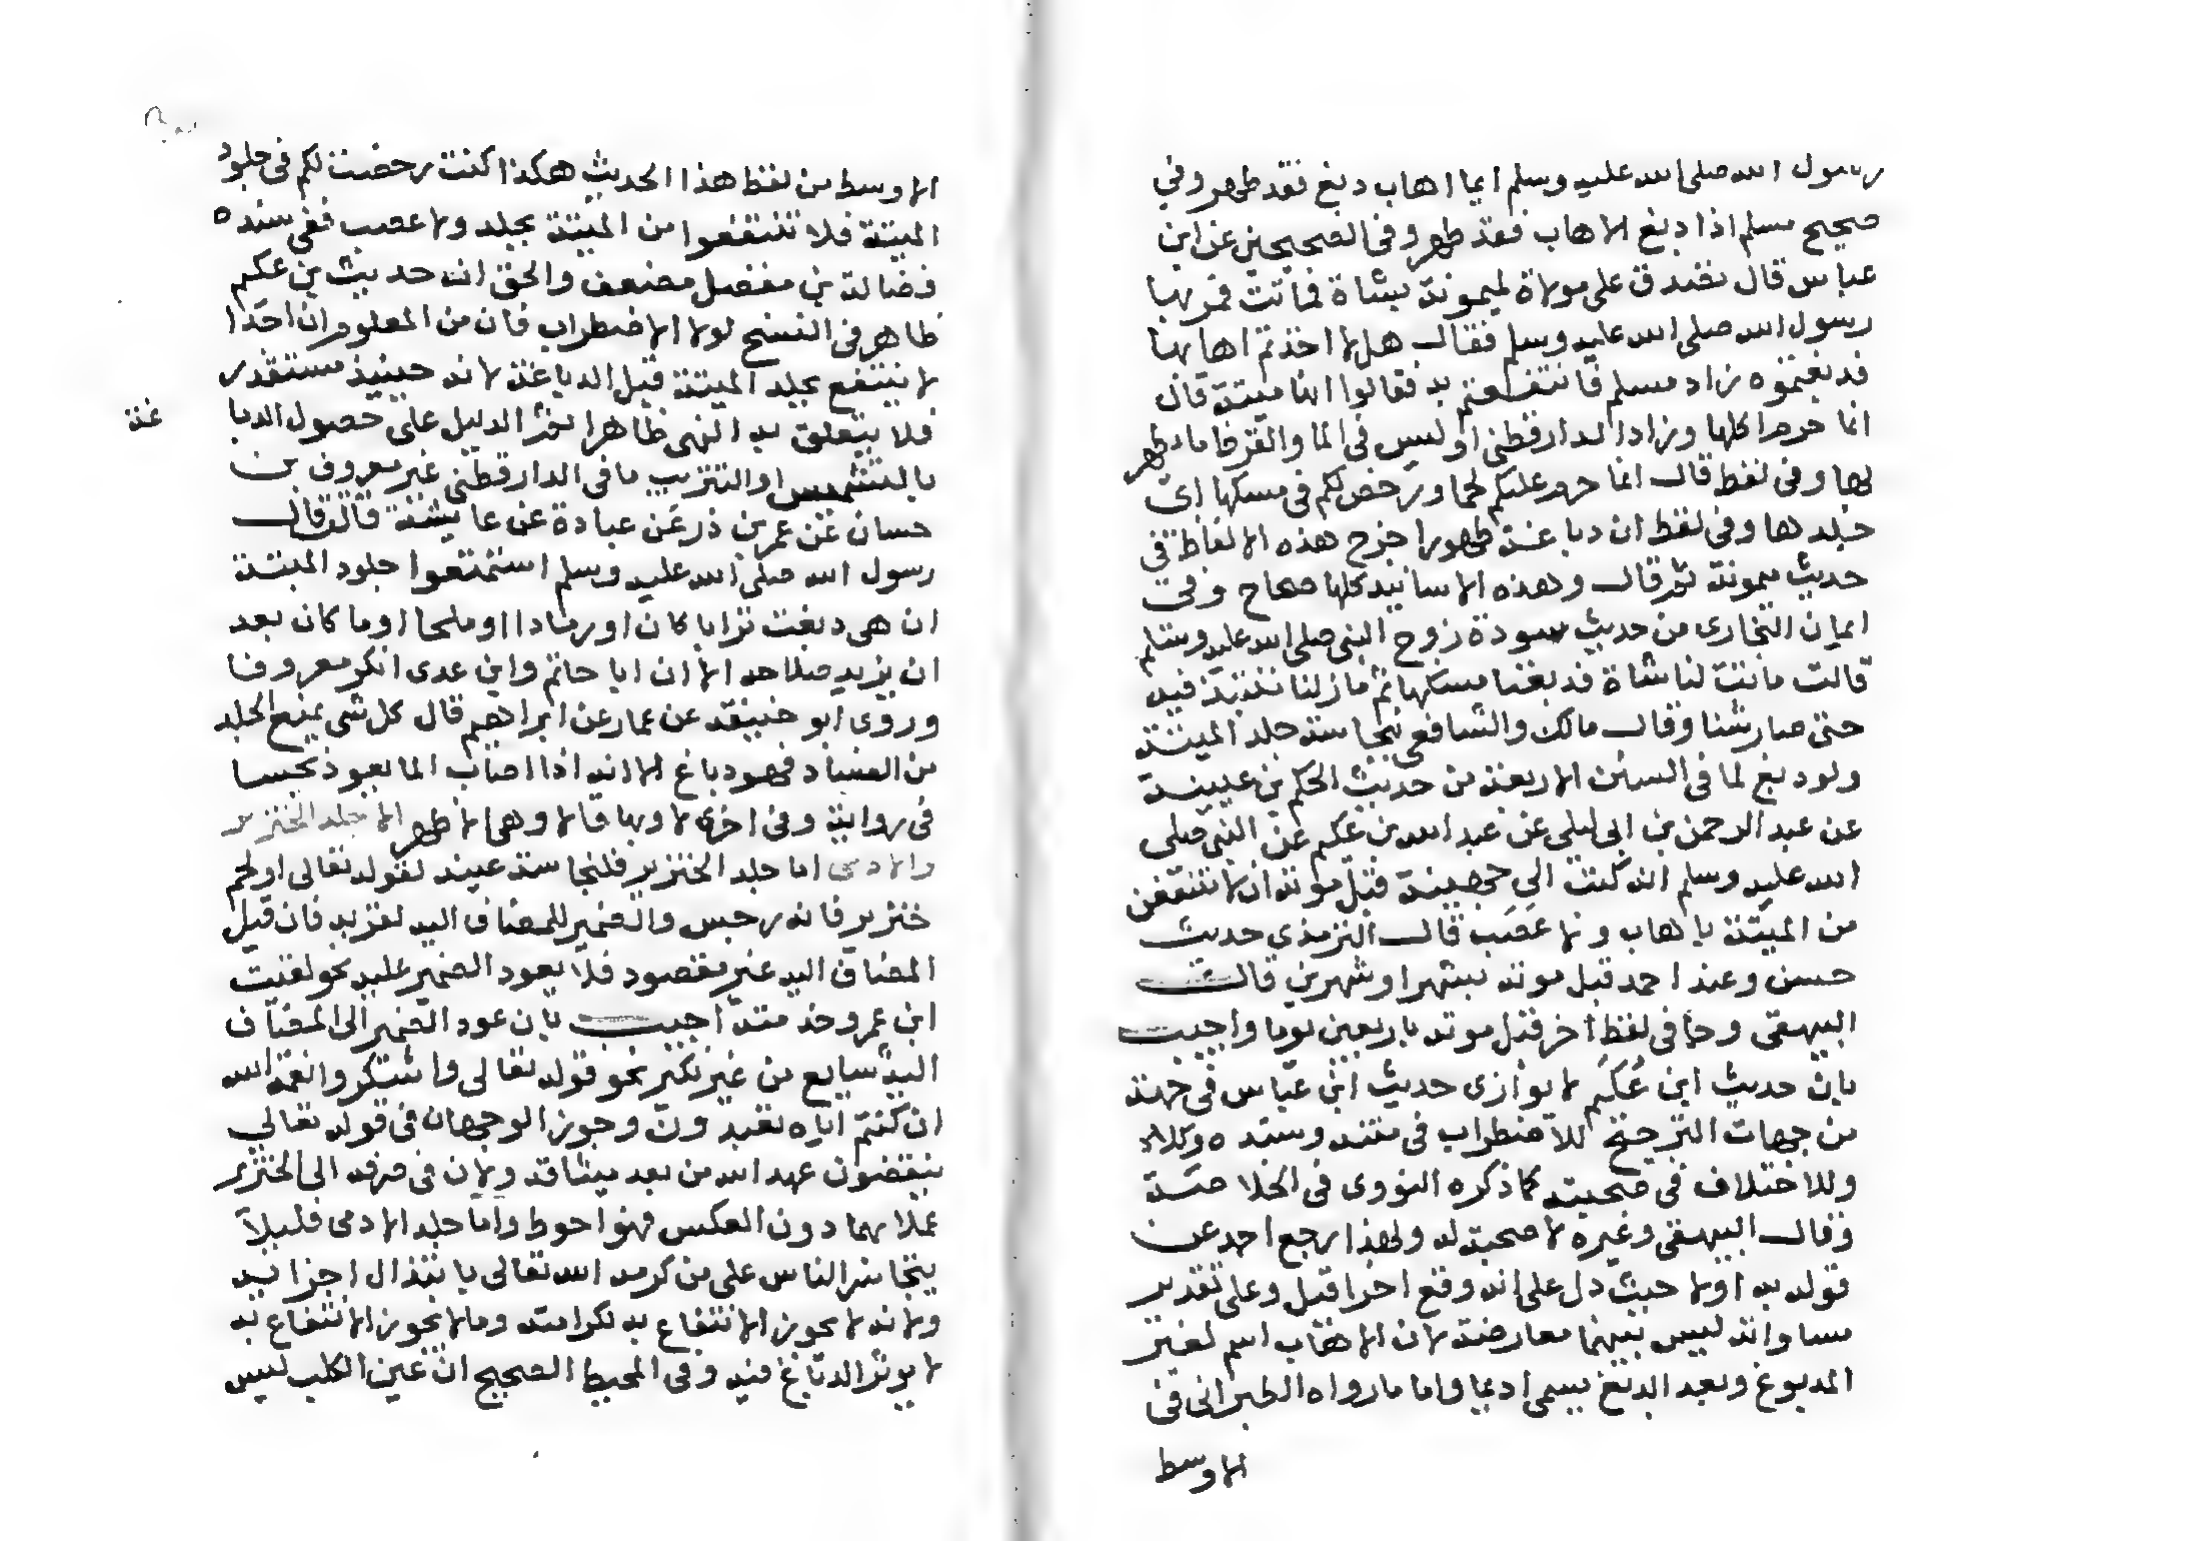 رسول الله صلى الله عليه وسلم ايما اهاب دبغ فقد طهر وفي
صحيح مسلم اذا دبغ الاهاب فقد طهر وفى الصحيحين عن ابن
عباس قال تصدق على مولاة لميمونة بشاة فماتت فمر بها
رسول الله صلى الله عليه وسلم فقال هلا اخذتم اهابها
فدبغتموه زاد مسلم فانتفعتم به فقالوا انها ميتة قال
انما حرم اكلها وزاد الدارقطنى اوليس فى الما والقرظ ما يطهر
لها وفى لفظ قال انما حرم عليكم لحمها ورخص لكم فى مسكها اى
جلدها وفى لفظ ان دباغه طهور اخرج هذه الالفاظ فى
حديث ميمونة ثم قال وهذه الاسانيد كلها صحاح وفى
ايمان البخارى من حديث سودة زوج النبى صلى الله عليه وسلم
قالت ماتت لنا شاة فدبغنا مسكها ثم مازلنا ننبذ فيه
حتى صار شنا وقال مالك والشافعى بنجاسة جلد الميتة
ولو دبغ لما فى السنن الاربعة من حديث الحكم بن عيينة
عن عبد الرحمن بن ابى ليلى عن عبد الله بن عكم عن النبى صلى
الله عليه وسلم انه كتب الى جهينة قبل موته ان لا تنتفعن
من الميتة باهاب ولا عصب قال الترمذى حديث
حسن وعند احمد قبل موته بشهر او شهرين قال
البيهقى وجا فى لفظ اخر قبل موته باربعين يوما واجيب
بان حديث ابن عكم لا يوازى حديث ابن عباس فى جهة
من جهات الترجيح للاضطراب فى متنه وسنده
وللاختلاف فى صحبته كما ذكره النووى فى الخلاصة
وقال البيهقى وغيره لا صحبة له ولهذا رجع احمد عن
قوله به اولا حيث دل على انه وقع اخرا قبل وعلى تقدير
مساواته ليس بينهما معارضة لان الاهاب اسم لغير
المدبوغ وبعد الدبغ يسمى اديما واما ما رواه الطبرانى فى
الاوسط
الاوسط من لفظ هذا الحديث هكذا كنت رخصت لكم فى جلود
الميتة فلا تنتفعوا من الميتة بجلد ولا عصب ففى سنده
فضالة بن مفضل مضعف والحق ان حديث بن عكم
ظاهر فى النسخ لولا الاضطراب فان من المعلوم ان احدا
لا ينتفع بجلد الميتة قبل الدباغة لانه حينئذ مستقذر
فلا يتعلق به النهى ظاهرا ثم الدليل على حصول الدبا
غة
بالتشميس او التتريب ما فى الدارقطنى غير معروف بن
حسان عن عمر بن ذر عن عبادة عن عايشة قالت قال
رسول الله صلى الله عليه وسلم استمتعوا جلود الميتة
ان هى دبغت ترابا كان او رمادا او ملحا او ما كان بعد
ان يزيد صلاحه الا ان ابا حاتم وابن عدى انكر معروفا
وروى ابو حنيفة عن عمار عن ابراهيم قال كل شى يمنع الجلد
من الفساد فهو دباغ الا انه اذا اصاب الما يعود نجسا
فى رواية وفى اخرى لا وبها قالا وهى الاظهر الا جلد الخنزير
والادمى اما جلد الخنزير فلنجاسة عينه لقوله تعالى او لحم
خنزير فانه رجس والضمير للمضاف اليه لقربه فان قيل
المضاف اليه غير مقصود فلا يعود الضمير عليه نحو لقيت
ابن عمرو حدمته اجيب بان عود الضمير الى المضاف
اليه شايع من غير نكير نحو قوله تعالى واشكروا نعمة الله
ان كنتم اياه تعبدون وجوز الوجهان فى قوله تعالى
ينقضون عهد الله من بعد ميثاقه ولان فى صرفه الى الخنزير
عملا بهما دون العكس فهو احوط واما جلد الادمى فليلا
يتجاسر الناس على من كرمه الله تعالى بابتذال اجزايه
ولانه لا يجوز الانتفاع به لكرامته وما لا يجوز الانتفاع به
لا يوثر الدباغ فيه وفى المحيط الصحيح ان عين الكلب ليس